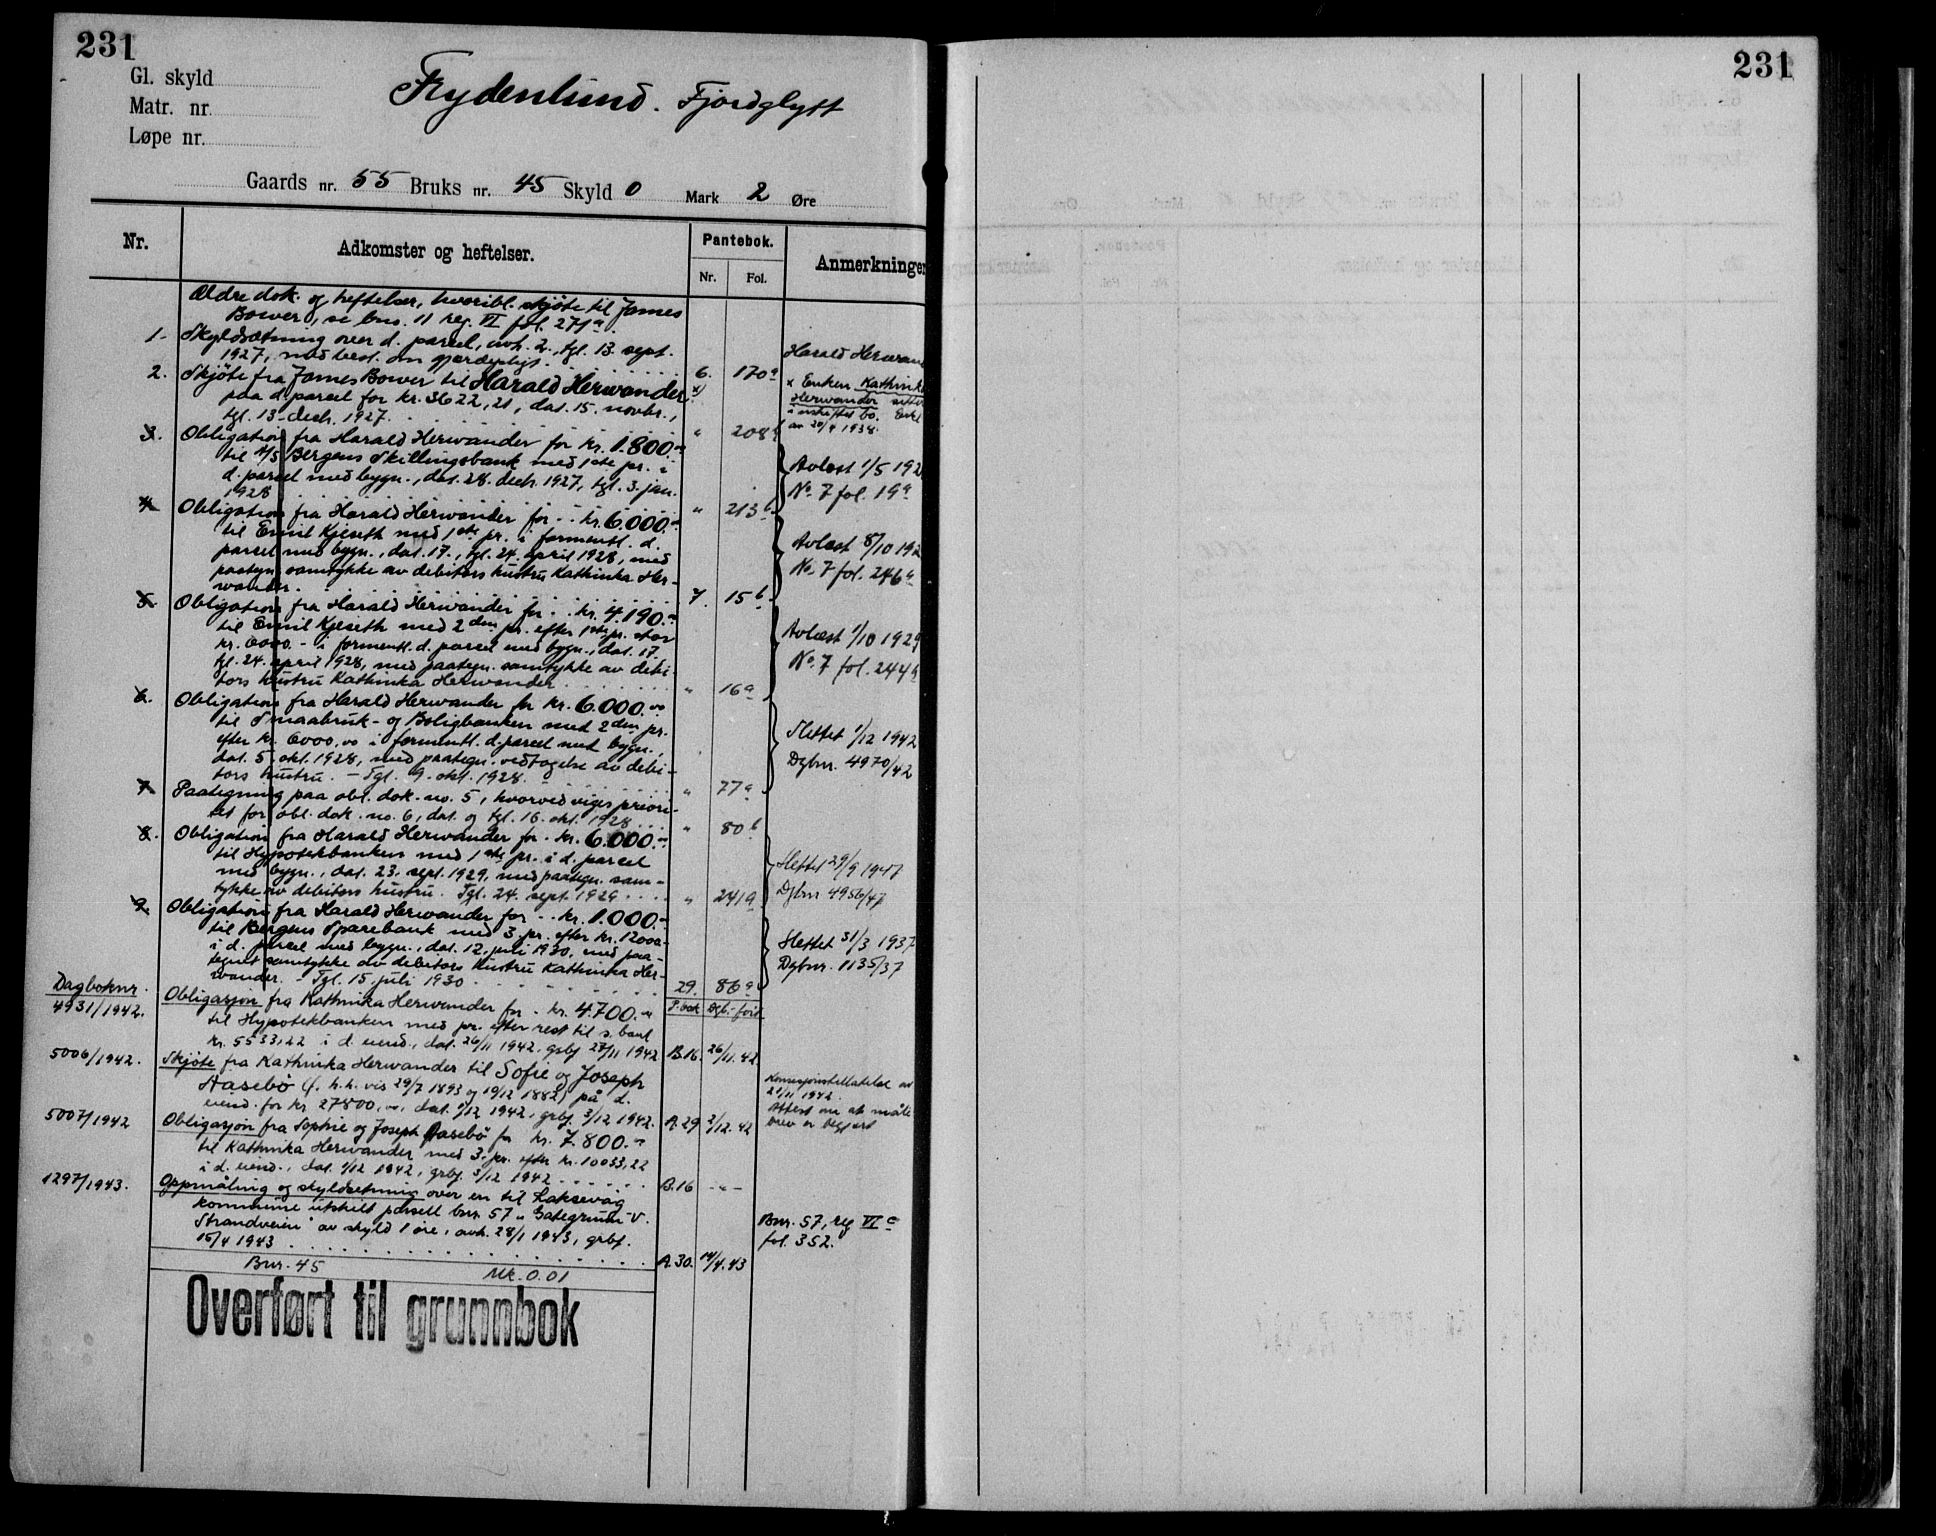 231
Gl. skyld
Matr. nr.
Løpe nr.
Frydenlund. Fjordglytt
Gaards nr. 55 Bruks nr. 45 Skyld 0 Mark 2 Øre
Nr.
Adkomster og heftelser.
Pantebok.
Nr. Fol.
Anmerkninger
Ældre dok. og heftelser, hvoribl. skjöte til James
Bower, se bno. 11 reg. VI fol. 271a.
1. Skyldsætning over d. parcel, avh. 2., tgl. 13. sept.
1927, med best. om gjerdepligt. 6. 170a
2. Skjöte fra James Bower til Harald Herwander x)
paa d. parcel for kr. 3622,21, dat. 15. novbr.,
tgl. 13. decb. 1927. " 208b
Harald Herwand
x Enken Kathinka
Herwander sitter
i uskiftet bo. Erkl
av 20/4 1938.
3. Obligation fra Harald Herwander for kr. 1.800.-
til A/S Bergens Skillingsbank med 1ste pr. i
d. parcel med bygn., dat. 28. decb. 1927, tgl. 3. jan.
1928 " 213b
Avlæst 1/5 192
No. 7 fol. 19a
4. Obligation fra Harald Herwander for kr. 6.000.-
til Emil Kjeseth med 1ste pr. i formentl. d.
parcel med bygn., dat. 17., tgl. 24. april 1928, med
paategn. samtykke av debitors hustru Kathinka Her-
wander. 7. 15b
Avlæst 8/10 192
No. 7 fol. 246a
5. Obligation fra Harald Herwander for kr. 4.190.-
til Emil Kjeseth med 2den pr. efter 1ste pr. stor
kr. 6000.- i formentl. d. parcel med bygn., dat. 17.
tgl. 24. april 1928, med paategn. samtykke av debi-
tors hustru Kathinka Herwander " 16a
Avlæst 1/10 1929
No. 7 fol. 244b
6. Obligation fra Harald Herwander for kr. 6.000.00
til Smaabruk- og Boligbanken med 2den pr.
efter kr. 6000,00 i formentl. d. parcel med bygn.,
dat. 5. okt. 1928, med paategn. vedtagelse av debi-
tors hustru. - Tgl. 9. okt. 1928. " 77a
Slettet 1/12 1942
Dgbnr. 4970/42
7. Paategning paa obl. dok. no. 5, hvorved viges priori-
tet for obl. dok. no. 6, dat. og tgl. 16. okt. 1928 " 80b
8. Obligation fra Harald Herwander for kr. 6.000.-
til Hypotekbanken med 1ste pr. i d. parcel
med bygn., dat. 23. sept. 1929, med paategn. sam-
tykke av debitors hustru. Tgl. 24. sept. 1929 " 241a
Slettet 29/9 1947
Dgbnr 4956/47
9. Obligation fra Harald Herwander for kr. 1.000.-
til Bergens Sparebank med 3. pr. efter kr. 12000.-
i d. parcel med bygn., dat. 12. juli 1930, med paa-
tegnet samtykke av debitors hustru Kathinka Her-
wander. - Tgl. 15. juli 1930 29. 86a
Slettet 31/3 1937
Dgbnr. 1135/37
Dagboknr.
P.bok Dgb.-ført
4931/1942. Obligasjon fra Kathinka Herwander for kr. 4.700.-
til Hypotekbanken med pr. efter rest til s. bank
kr. 5533,22 i d. eiend., dat. 26/11 1942. grbf 27/11 1942 B.16. 26/11.42
5006/1942. Skjöte fra Kathinka Herwander til Sofie og Joseph
Aasebö (f. h.h. vis 29/7 1893 og 19/12 1882) på d.
eiend. for kr 27800,00, dat. 1/12 1942, grbf. 3/12 1942. A.29 2/12.42
Konsesjonstillatelse av
21/11 1942.
Attest om at måle-
brev er begjært
5007/1942 Obligasjon fra Sophie og Joseph Aasebö for kr. 7.800.-
til Kathinka Herwander med 3. pr. efter kr. 10033,22
i d. eiend., dat. 1/12 1942, grbf. 3/12 1942 B.16 - " -
1297/1943. Oppmåling og skyldsetning over en til Laksevåg
kommune utskilt parsell bnr. 57 "Gategrunn v.
Strandveien" av skyld 1 øre, avh. 28/1 1943, grbf.
15/4 1943 A.30. 14/4.43
Bnr. 57, reg VIc
fol. 352.
Bnr. 45 Mk. 0.01
Overført til grunnbok
231